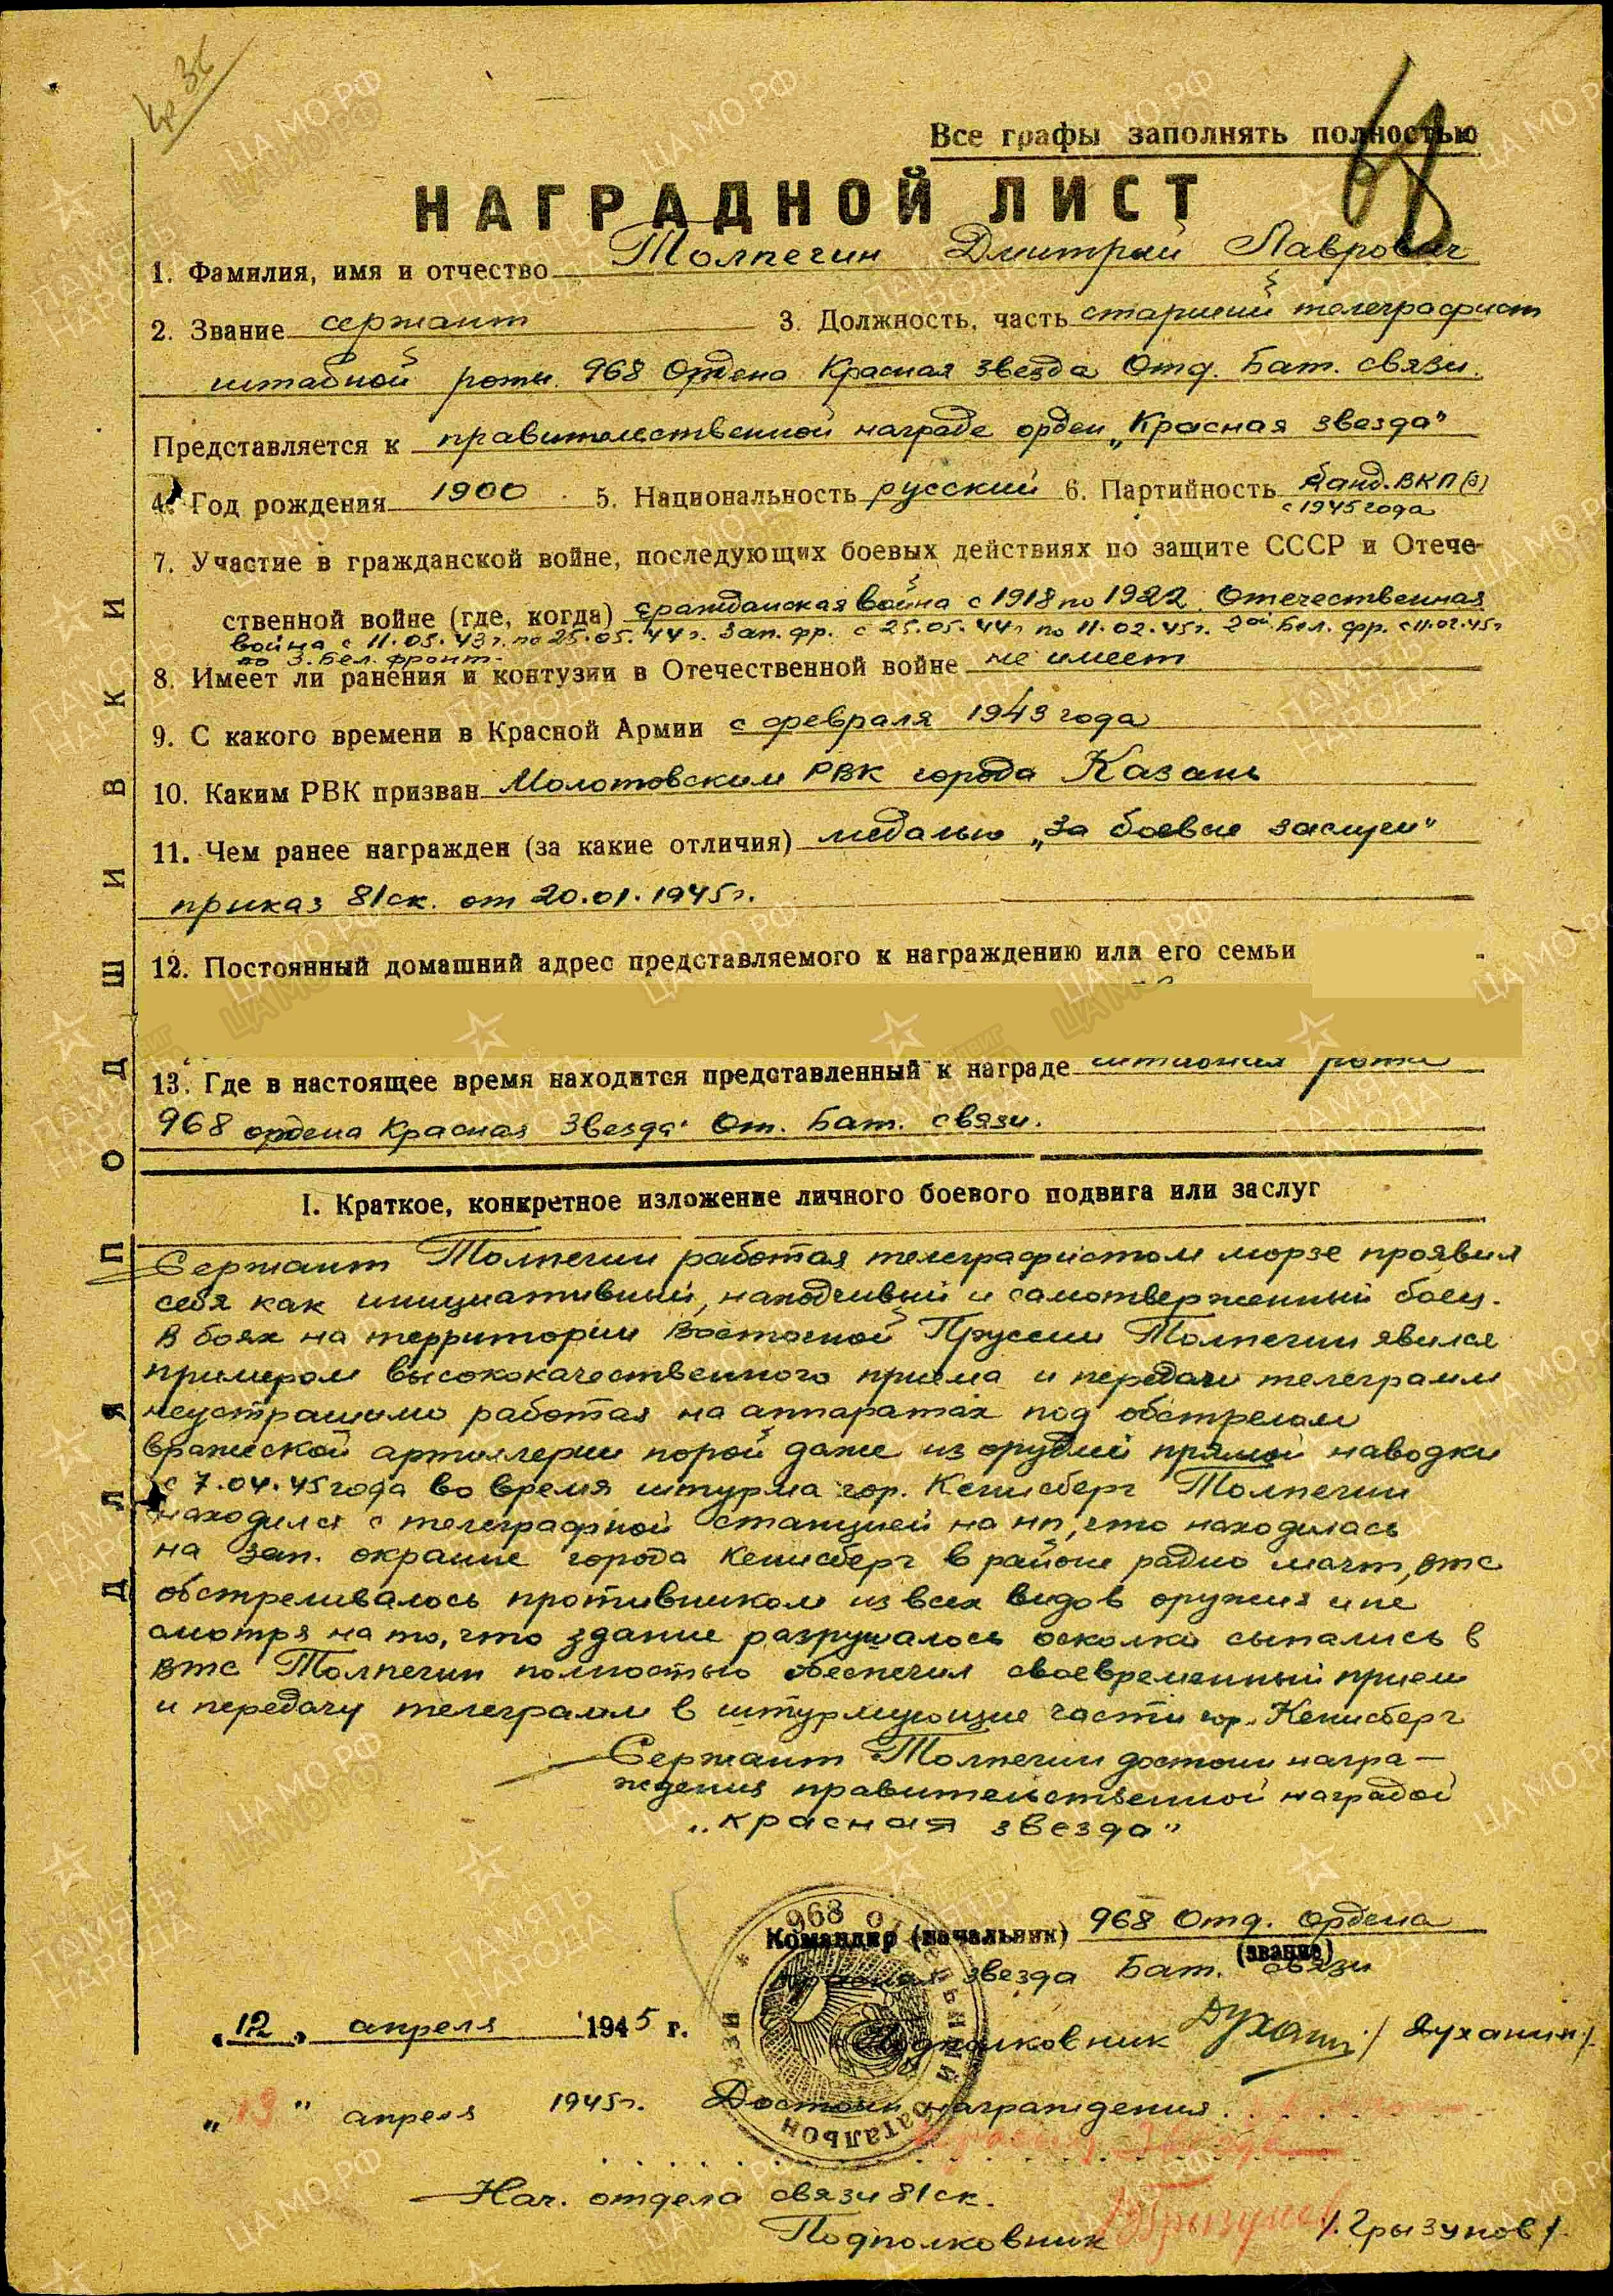 Все графы заполнять полностью
НАГРАДНОЙ ЛИСТ
1. Фамилия, имя и отчество Толпегин Дмитрий Лаврович
2. Звание сержант 3. Должность, часть старший телеграфист
штабной роты 968 Ордена Красная звезда Отд. Бат. связи.
Представляется к правительственной награде орден „Красная звезда"
4. Год рождения 1900 5. Национальность русский 6. Партийность Канд. ВКП(б)
с 1945 года
7. Участие в гражданской войне, последующих боевых действиях по защите СССР и Отече-
ственной войне (где, когда) гражданская война с 1918 по 1922. Отечественная
война с 11.05.43г. по 25.05.44г. Зап. фр. с 25.05.44г по 11.02.45г. 2ой Бел. фр. с 11.02.45г
по 3. Бел. фронт.
8. Имеет ли ранения и контузии в Отечественной войне не имеет
9. С какого времени в Красной Армии с февраля 1943 года
10. Каким РВК призван Молотовским РВК города Казань
11. Чем ранее награжден (за какие отличия) медалью „За боевые заслуги"
приказ 81ск. от 20.01.1945г.
12. Постоянный домашний адрес представляемого к награждению или его семьи
13. Где в настоящее время находится представленный к награде штабная рота
968 ордена Красная Звезда От. Бат. связи.
I. Краткое, конкретное изложение личного боевого подвига или заслуг
Сержант Толпегин работая телеграфистом морзе проявил
себя как инициативный, находчивый и самотверженный боец.
В боях на территории Восточной Пруссии Толпегин явился
примером высококачественного приема и передачи телеграмм
неустрашимо работая на аппаратах под обстрелом
вражеской артиллерии порой даже из орудий прямой наводки
с 7.04.45 года во время штурма гор. Кенисберг Толпегин
находился с телеграфной станцией на нп, что находилась
на зап. окраине города Кенисберг в районе радио мачт, втс
обстреливалось противником из всех видов оружия и не
смотря на то, что здание разрушалось осколки сыпались в
втс Толпегин полностью обеспечил своевременный прием
и передачу телеграмм в штурмующие части гор. Кенисберг
Сержант Толпегин достоин награ-
ждения правительственной наградой
„красная звезда"
Командир (начальник) 968 Отд. Ордена
(звание)
красная звезда Бат. связи
„12" апреля 1945 г. Подполковник Духанин /Духанин/
„13" апреля 1945г. Достоин награждения орденом
Красная Звезда
Нач. отдела связи 81ск.
Подполковник /Грызунов/
ДЛЯ ПОДШИВКИ
968
ПАМЯТЬ НАРОДА
ЦА МО РФ